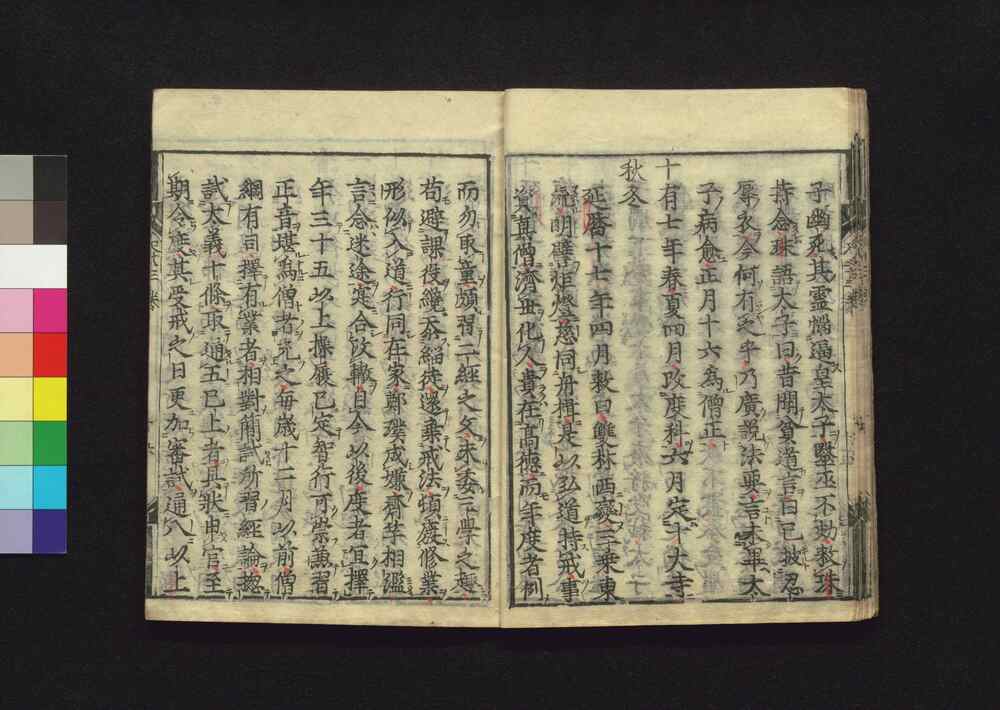 子幽死其靈惱逼皇太子醫巫不効敕珠
持念珠語太子曰昔聞貧道言曰已披忍
辱衣今何有之乎乃廣説法要言未畢太
子病愈正月十六為僧正
十有七年春夏四月改度科六月定十大寺
秋冬
延暦十七年四月敕曰雙林西變三乗東
流明譬炬燈慈同舟楫是以弘道持戒事
資真僧濟世化人貴在髙徳而年度者例
而勿取童頗習二經之文未委三學之趣
苟避課役纔忝緇徒還棄戒法頓廢修業
形似入道行同在家鄭璞成嫌齊竽相濫
言念迷途寔合改轍自今以後度者宜擇
年三十五以上操履已定智行可崇兼習
正音堪為僧者充之毎歳十二月以前僧
綱有司擇有業者相對簡試所習經論揔
試大義十條取通五已上者具狀申官至
期令度其受戒之日更加審試通八以上